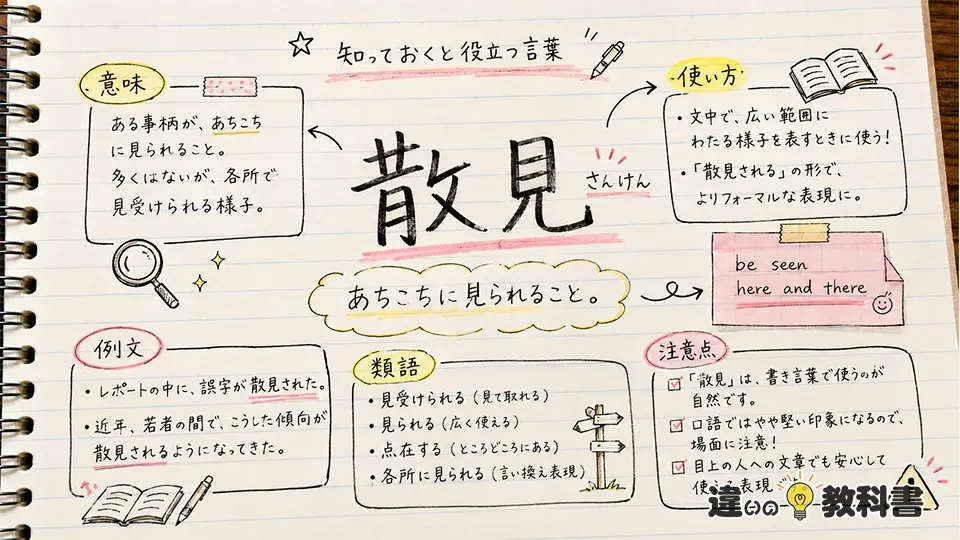 知っておくと役立つ言葉
意味
ある事柄が、あちこち
に見られること。
多くはないが、各所で
見受けられる様子。
散見
さんけん
使い方
・文中で、広い範囲に
わたる様子を表すときに使う!
・「散見される」の形で、
よりフォーマルな表現に。
あちこちに見られること。
be seen
here and there
例文
・レポートの中に、誤字が散見された。
・近年、若者の間で、こうした傾向が
散見されるようになってきた。
類語
・見受けられる(見て取れる)
・見られる(広く使える)
・点在する(ところどころにある)
・各所に見られる(言い換え表現)
注意点
「散見」は、書き言葉で使うのが
自然です。
口語ではやや堅い印象になるので、
場面に注意!
目上の人への文章でも安心して
使える表現
違いの教科書